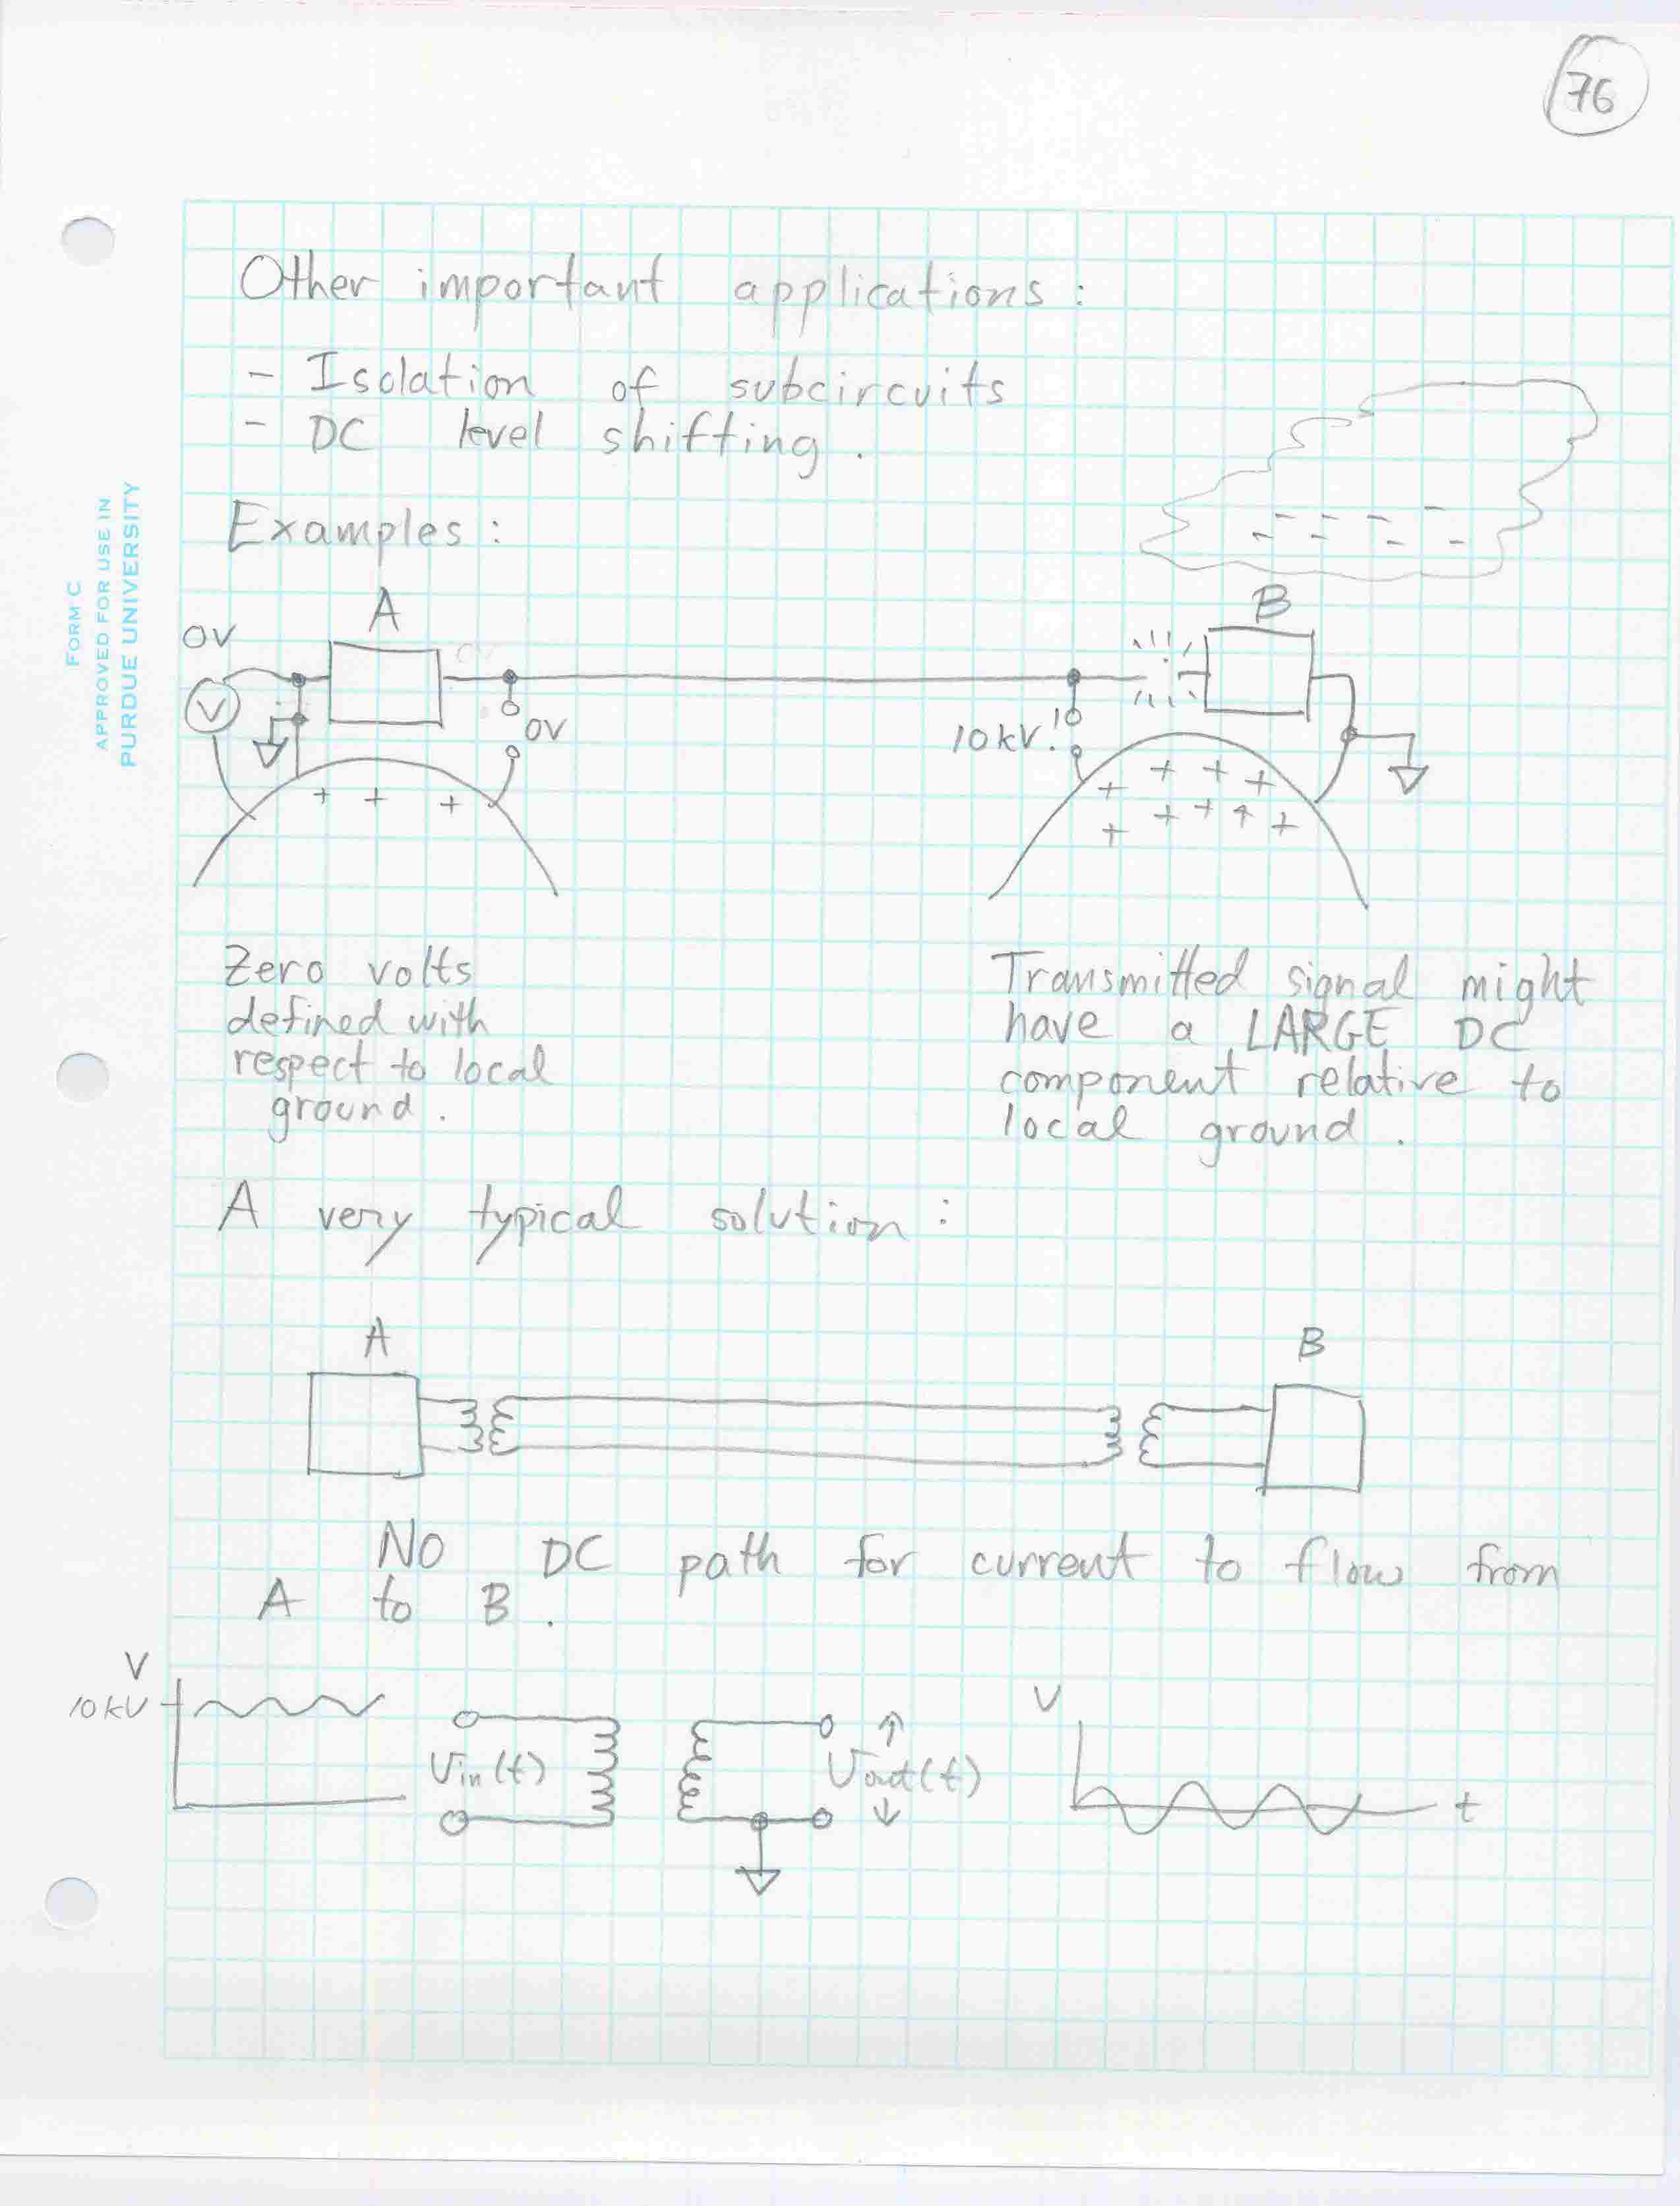 76
FORM C
APPROVED FOR USE IN
PURDUE UNIVERSITY
Other important applications:
- Isolation of subcircuits
- DC level shifting.
Examples:
A
B
0V
V
0V
10kV!
+ + +
+ + + +
+ + + + +
Zero volts
defined with
respect to local
ground.
Transmitted signal might
have a LARGE DC
component relative to
local ground.
A very typical solution:
A
B
No DC path for current to flow from
A to B.
V
10kV
Vin(t)
Vout(t)
V
t